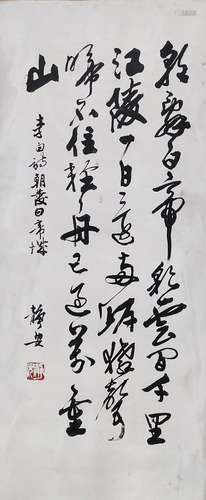 朝辭白帝彩雲間千里
江陵一日還兩岸猿聲
啼不住輕舟已過萬重
山
李白詩朝發白帝城